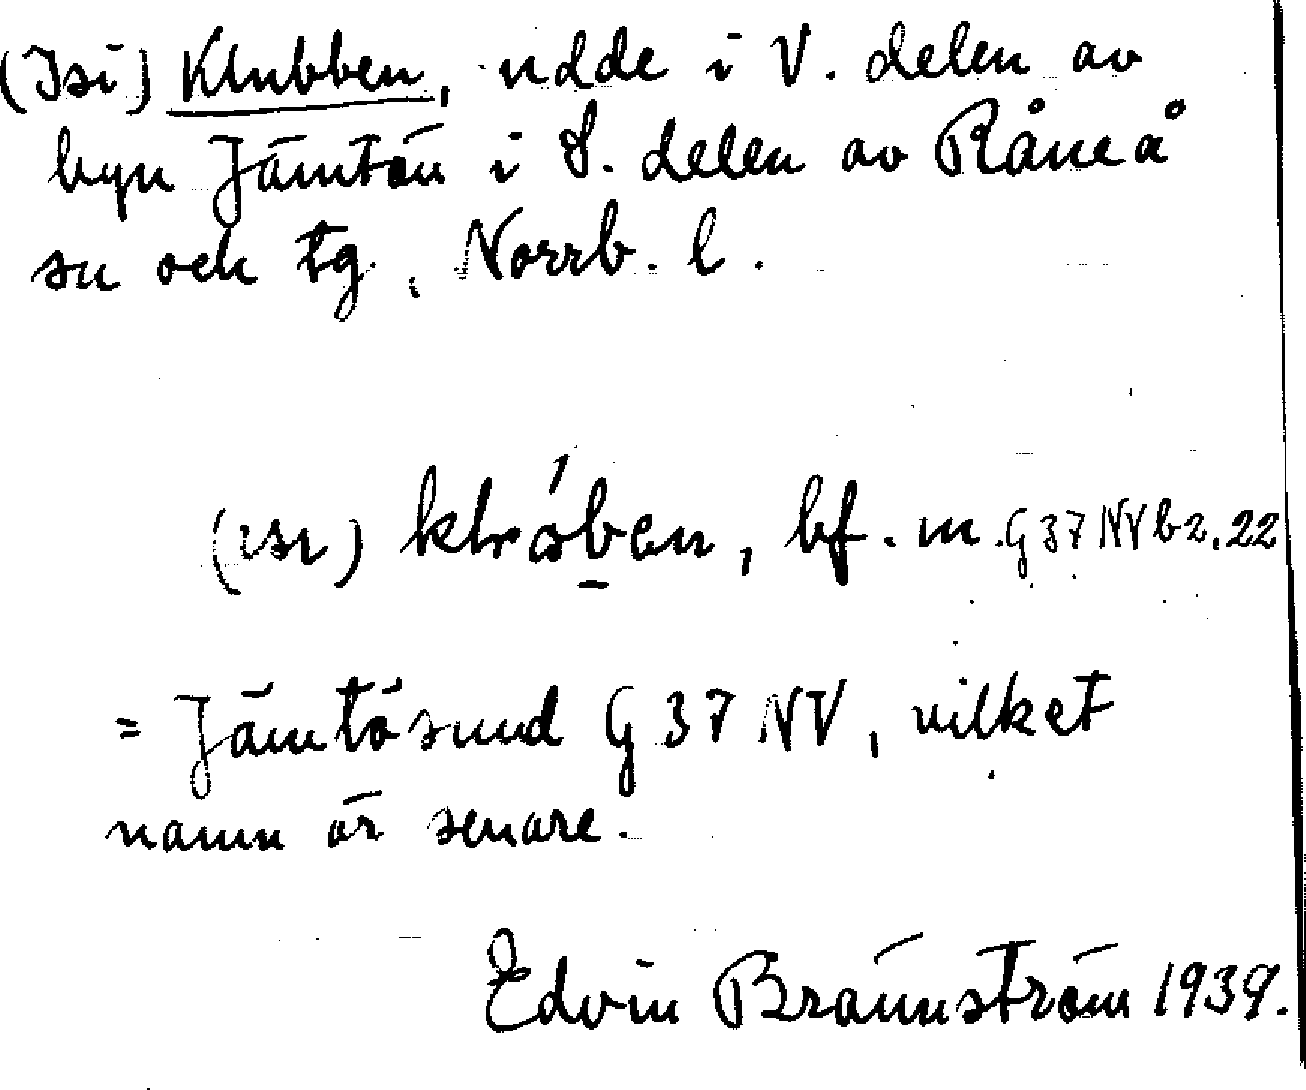 (Isi) Klubben, udde i V. delen av
byn Jämtön i S. delen av Råneå
sn och tg, Norrb. l.
bf. m. G 37 NV b 2, 22
= Jämtösund G 37 NV, vilket
namn är senare.
Edvin Brännström 1939.